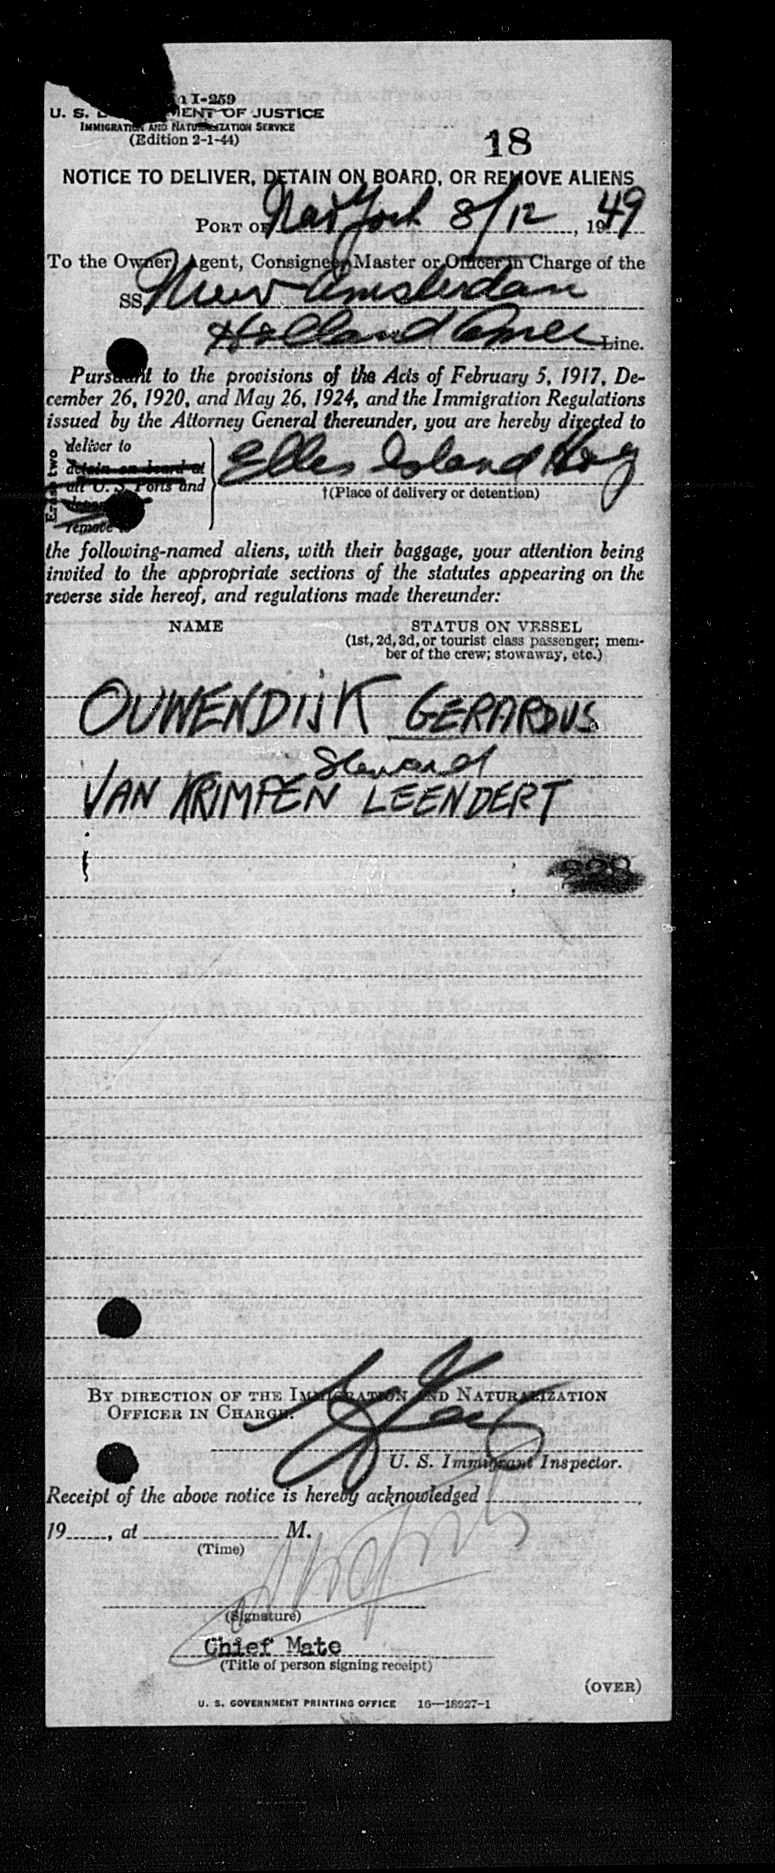 I-259
U. S. DEPARTMENT OF JUSTICE
IMMIGRATION AND NATURALIZATION SERVICE
(Edition 2-1-44)
18
NOTICE TO DELIVER, DETAIN ON BOARD, OR REMOVE ALIENS
PORT OF New York 8/12, 1949
To the Owner, Agent, Consignee, Master or Officer in Charge of the
SS. Nieuw Amsterdam
Holland Amer Line.
Pursuant to the provisions of the Acts of February 5, 1917, De-
cember 26, 1920, and May 26, 1924, and the Immigration Regulations
issued by the Attorney General thereunder, you are hereby directed to
Erase two
deliver to
detain on board at
all U. S. Ports and
remove to
Ellis Island
†(Place of delivery or detention)
the following-named aliens, with their baggage, your attention being
invited to the appropriate sections of the statutes appearing on the
reverse side hereof, and regulations made thereunder:
NAME STATUS ON VESSEL
(1st, 2d, 3d, or tourist class passenger; mem-
ber of the crew; stowaway, etc.)
OUWENDIJK GERARDUS
Steward
VAN KRIMPEN LEENDERT
BY DIRECTION OF THE IMMIGRATION AND NATURALIZATION
OFFICER IN CHARGE:
U. S. Immigrant Inspector.
Receipt of the above notice is hereby acknowledged
19, at M.
(Time)
(Signature)
Chief Mate
(Title of person signing receipt)
(OVER)
U. S. GOVERNMENT PRINTING OFFICE 16—18027-1